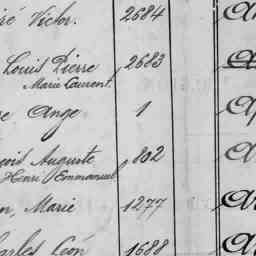 ré Victor. 2684
Louis Pierre 2683
Marie Laurent.
e Ange 1
çois Auguste 802
Henri Emmanuel
n, Marie 1277
harles Léon 1688